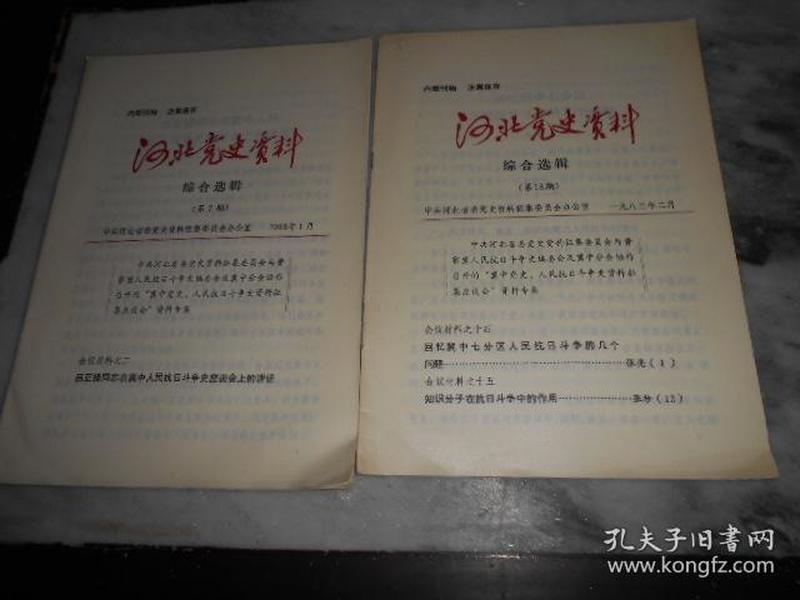 内部刊物 注意保存
河北党史资料
综合选辑
（第7期）
中共河北省委党史资料征集委员会办公室 1983年1月
中共河北省委党史资料征集委员会与晋
察冀人民抗日斗争史编委会及冀中分会协作
召开的“冀中党史、人民抗日斗争史资料征
集座谈会”资料专集
会议材料之二
吕正操同志在冀中人民抗日斗争史座谈会上的讲话
内部刊物 注意保存
河北党史资料
综合选辑
（第18期）
中共河北省委党史资料征集委员会办公室 一九八三年二月
中共河北省委党史资料征集委员会与晋
察冀人民抗日斗争史编委会及冀中分会协作
召开的“冀中党史、人民抗日斗争史资料征
集座谈会”资料专集
会议材料之十五
回忆冀中七分区人民抗日斗争的几个
问题……………………………………张
（1）
会议材料之十五
知识分子在抗日斗争中的作用……………张
（12）
孔夫子旧书网
www.kongfz.com